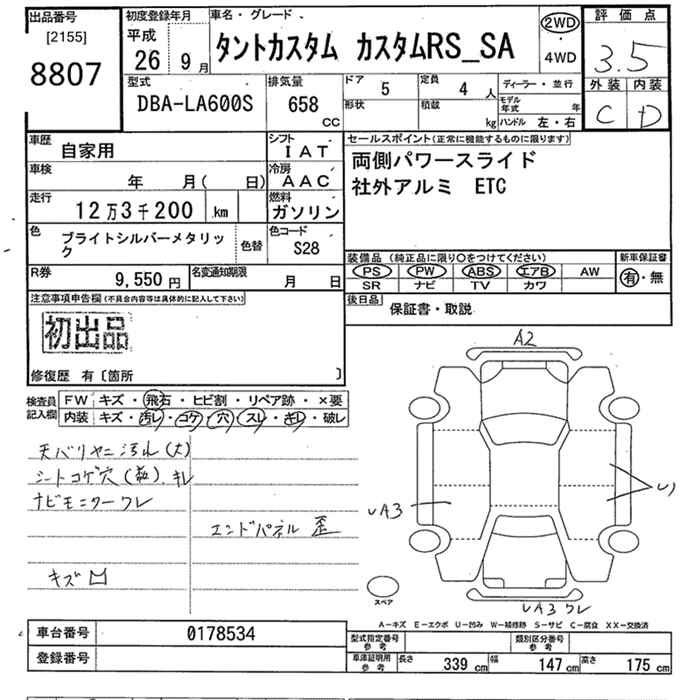 出品番号
[2155]
8807
初度登録年月
平成
26年 9月
車名・グレード
タントカスタム カスタムRS_SA
2WD
・
4WD
評価点
3.5
外装 内装
C D
型式
DBA-LA600S
排気量
658
CC
ドア 5
形状
定員 4 人
積載 kg
ディーラー・並行
モデル年式 年
ハンドル 左・右
車歴
自家用
シフト
IAT
車検
年 月( 日)
冷房
AAC
走行
12万3千200 km
燃料
ガソリン
色
ブライトシルバーメタリック
色替
色コード
S28
R券
9,550円
名変通知期限
月 日
セールスポイント(正常に機能するものに限ります)
両側パワースライド
社外アルミ ETC
装備品(純正品に限り○をつけてください)
PS PW ABS エアB AW
SR ナビ TV カワ
新車保証書
有・無
後日品
保証書・取説
注意事項申告欄(不具合内容等は具体的に記入して下さい)
初出品
修復歴 有〔箇所 〕
検査員記入欄
FW キズ・飛石・ヒビ割・リペア跡・×要
内装 キズ・汚レ・コゲ・穴・スレ・キレ・破レ
天バリヤニ汚れ(大)
シートコゲ穴(数).キレ
ナビモニターワレ
エンドパネル 歪
キズ
A2
UA3
U
UA3 ワレ
スペア
A-キズ E-エクボ U-凹み W-補修跡 S-サビ C-腐食 XX-交換済
車台番号
0178534
登録番号
型式指定番号 参考
類別区分番号 参考
車庫証明用 参考
長さ 339 cm
幅 147 cm
高さ 175 cm